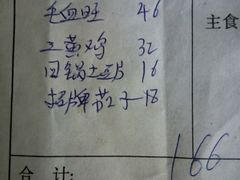 毛血旺 46
主食
三黄鸡 32
回锅土豆片 16
招牌茄子 18
166
合计: